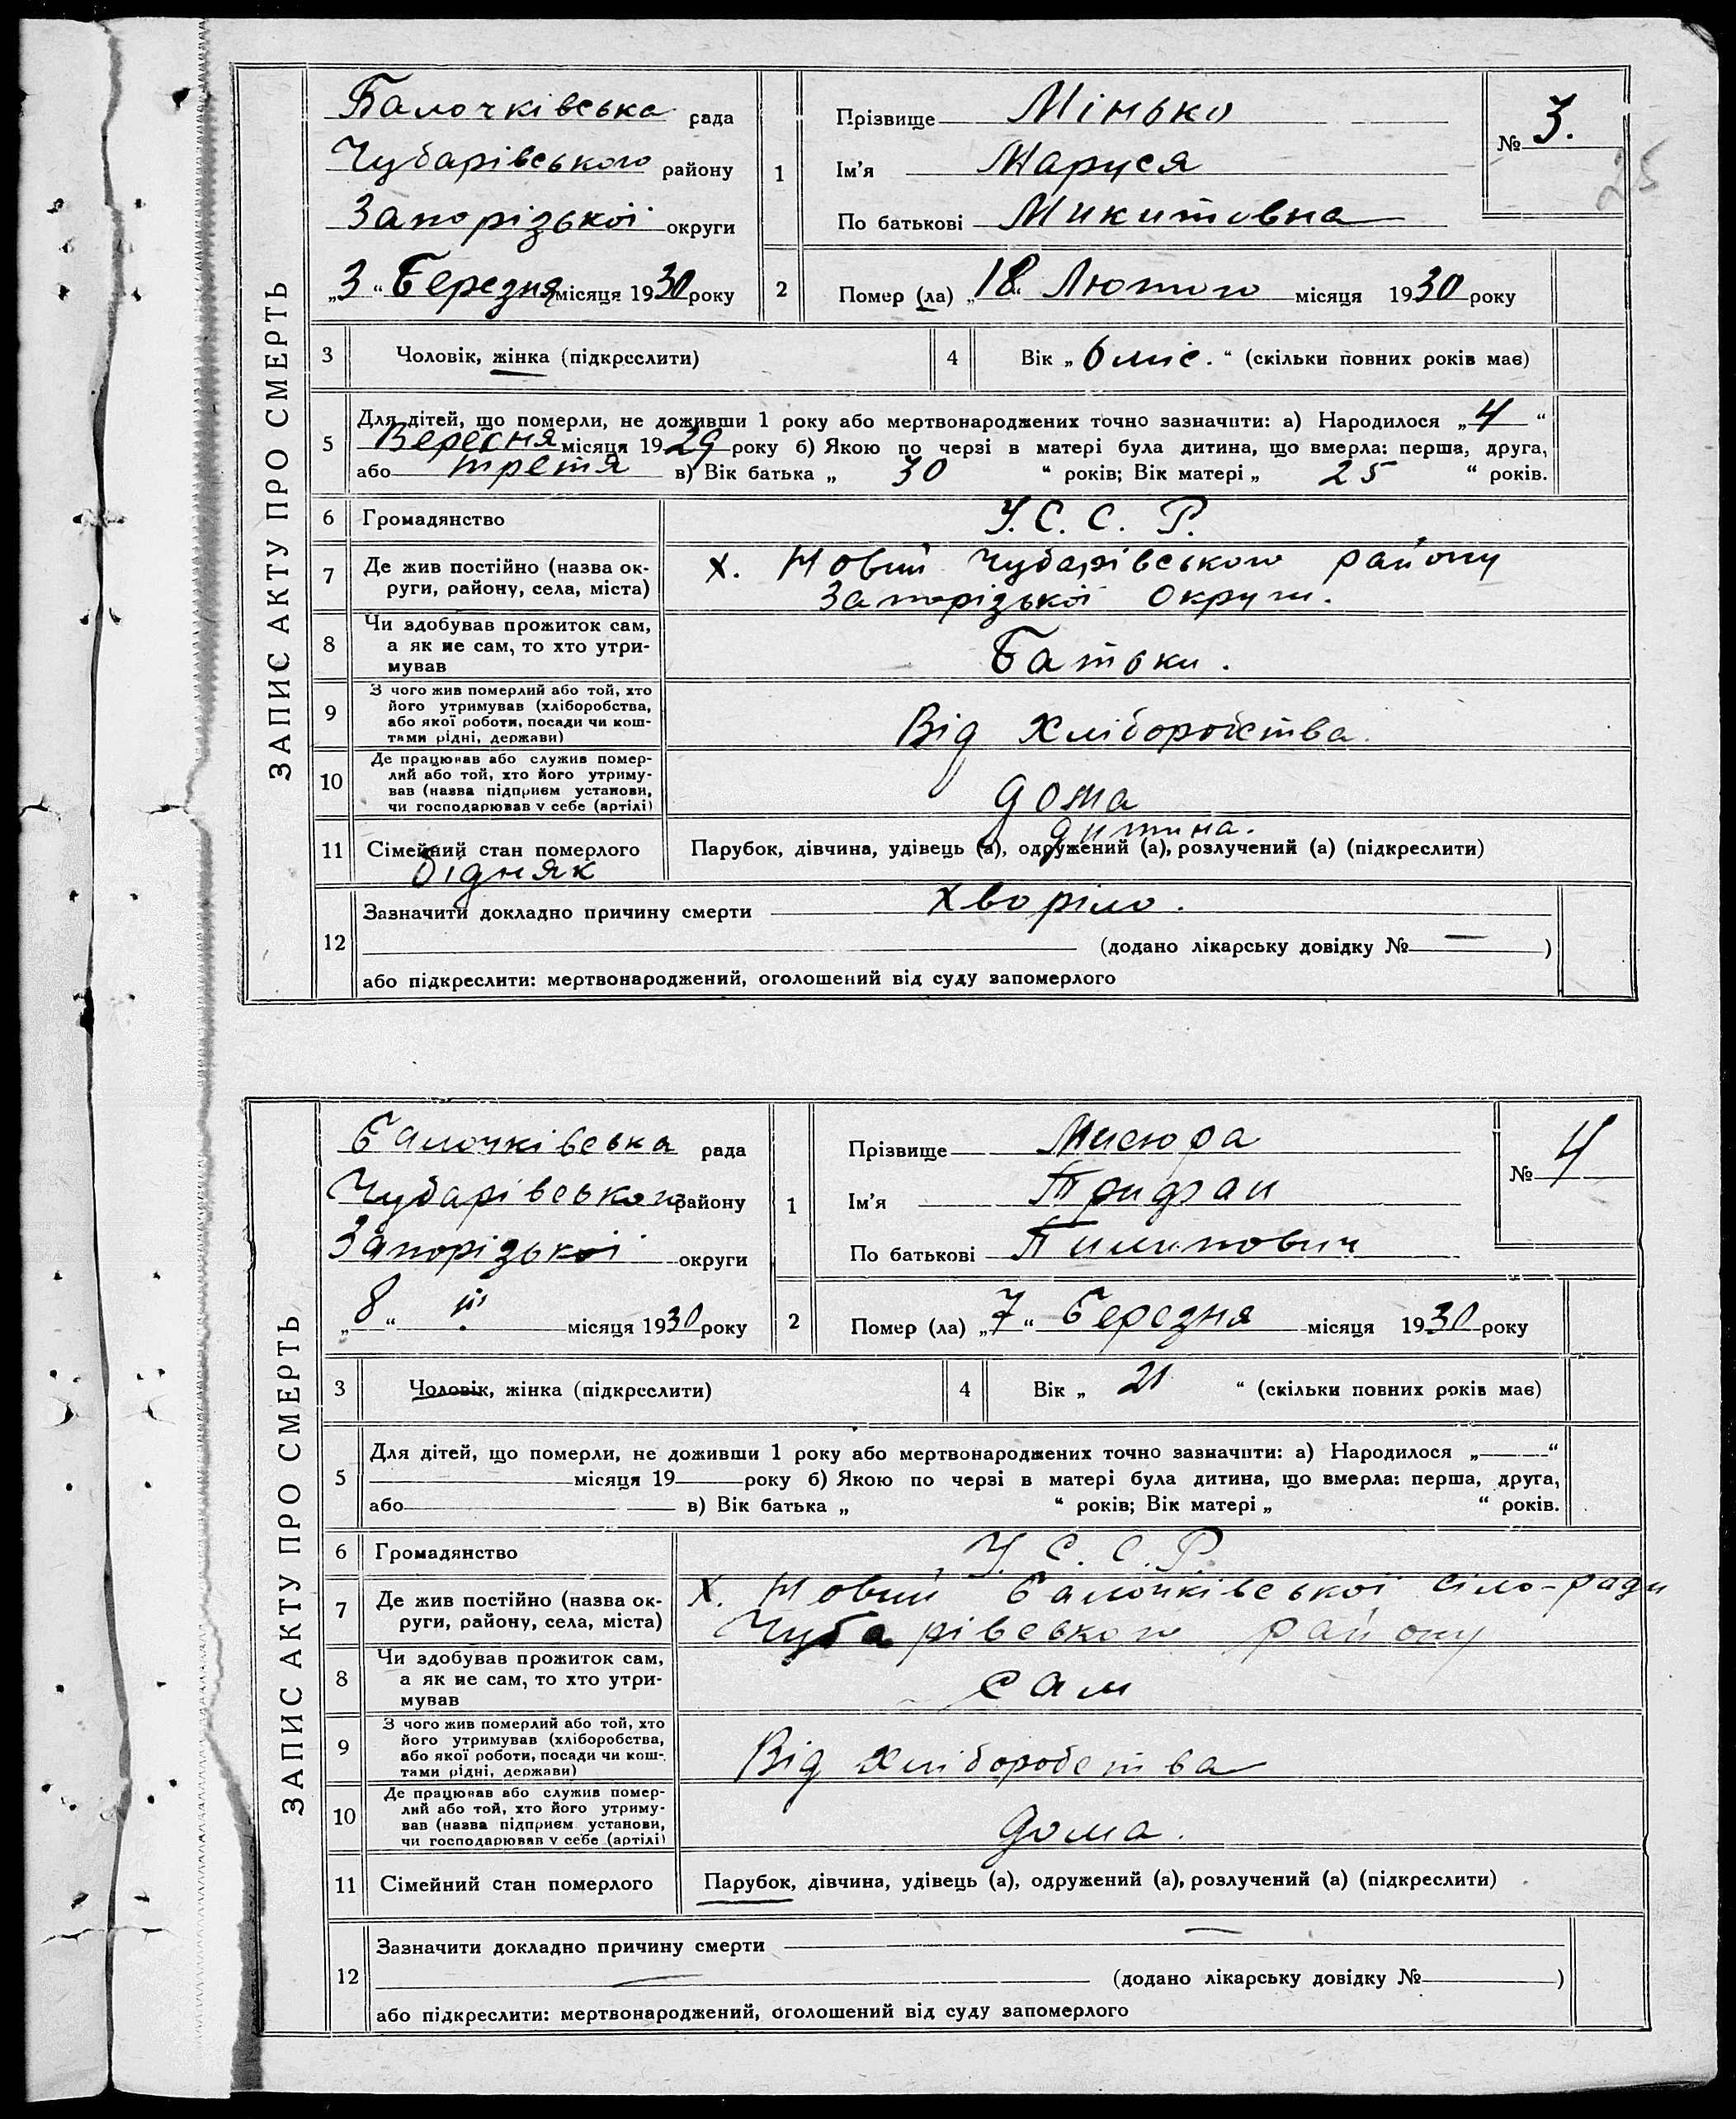 ЗАПИС АКТУ ПРО СМЕРТЬ
Балочківська рада
Чубарівського району
Запорізької округи
„3“ Березня місяця 1930 року
1
Прізвище Мінько
Ім'я Маруся
По батькові Микитовна
№ 3.
25
2
Помер (ла) „18“ Лютого місяця 1930 року
3 Чоловік, жінка (підкреслити)
4 Вік „6 міс.“ (скільки повних років має)
5 Для дітей, що померли, не доживши 1 року або мертвонароджених точно зазначити: а) Народилося „4“
Вересня місяця 1929 року б) Якою по черзі в матері була дитина, що вмерла: перша, друга,
або третя в) Вік батька „30“ років; Вік матері „25“ років.
6 Громадянство У. С. С. Р.
7 Де жив постійно (назва ок-
руги, району, села, міста)
х. Новий Чубарівського району
Запорізької Округи.
8 Чи здобував прожиток сам,
а як не сам, то хто утри-
мував
Батьки.
9 З чого жив померлий або той, хто
його утримував (хліборобства,
або якої роботи, посади чи кош-
тами рідні, держави)
Від Хліборобства.
10 Де працював або служив помер-
лий або той, хто його утриму-
вав (назва підприєм установи,
чи господарював у себе (артілі)
дома
дитина.
11 Сімейний стан померлого Парубок, дівчина, удівець (а), одружений (а), розлучений (а) (підкреслити)
бідняк
12 Зазначити докладно причину смерти Хворіло.
(додано лікарську довідку № — )
або підкреслити: мертвонароджений, оголошений від суду запомерлого
ЗАПИС АКТУ ПРО СМЕРТЬ
Балочківська рада
Чубарівського району
Запорізької округи
„8“ місяця 1930 року
1
Прізвище Мисюра
Ім'я
По батькові Пилипович
№ 4
2
Помер (ла) „7“ Березня місяця 1930 року
3 Чоловік, жінка (підкреслити)
4 Вік „21“ (скільки повних років має)
5 Для дітей, що померли, не доживши 1 року або мертвонароджених точно зазначити: а) Народилося „ “
місяця 19 року б) Якою по черзі в матері була дитина, що вмерла: перша, друга,
або в) Вік батька „ “ років; Вік матері „ “ років.
6 Громадянство У. С. С. Р.
7 Де жив постійно (назва ок-
руги, району, села, міста)
Х. Новий Балочківської сіло-ради
Чубарівського району
8 Чи здобував прожиток сам,
а як не сам, то хто утри-
мував
сам
9 З чого жив померлий або той, хто
його утримував (хліборобства,
або якої роботи, посади чи кош-
тами рідні, держави)
Від хліборобства
10 Де працював або служив помер-
лий або той, хто його утриму-
вав (назва підприєм установи,
чи господарював у себе (артілі)
дома.
11 Сімейний стан померлого Парубок, дівчина, удівець (а), одружений (а), розлучений (а) (підкреслити)
12 Зазначити докладно причину смерти —
— (додано лікарську довідку № )
або підкреслити: мертвонароджений, оголошений від суду запомерлого